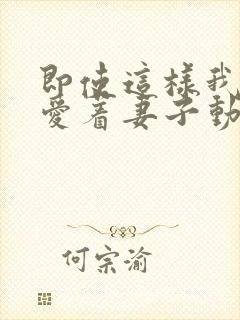 即使這樣我
愛着妻子動
何宗渝